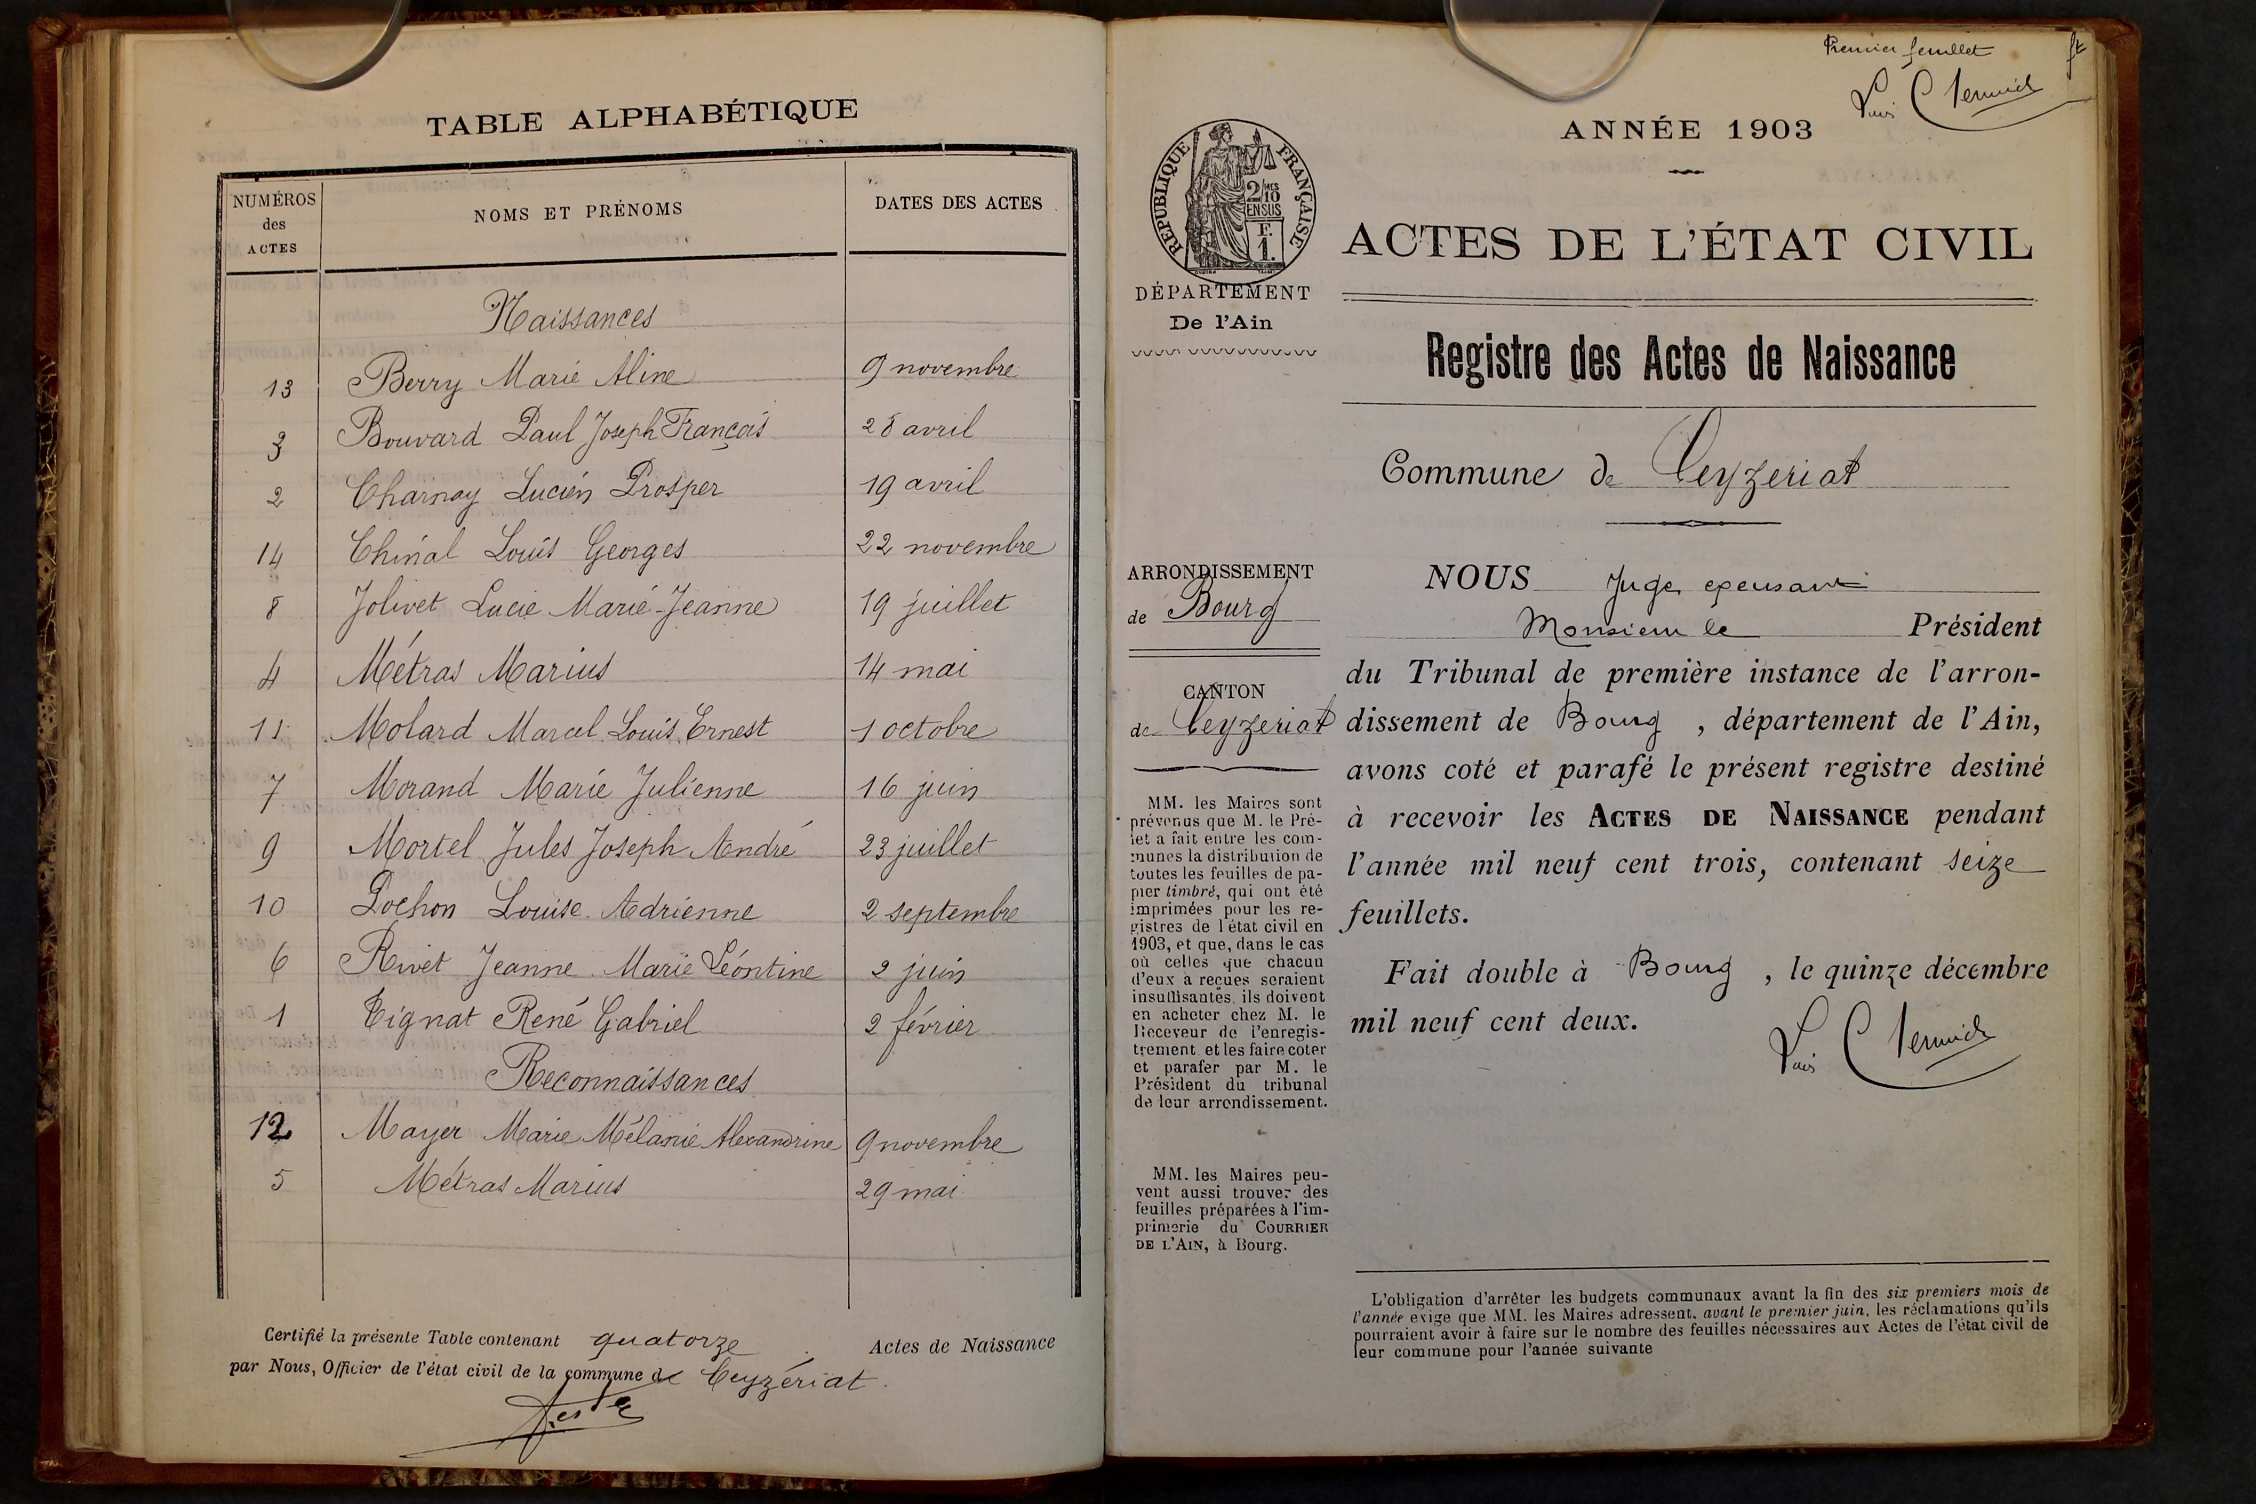 TABLE ALPHABÉTIQUE
NUMÉROS des ACTES
NOMS ET PRÉNOMS
DATES DES ACTES
Naissances
13 Berry Marie Aline 9 novembre
3 Bouvard Paul Joseph François 28 avril
2 Charnay Lucien Prosper 19 avril
14 Chinal Louis Georges 22 novembre
8 Jolivet Lucie Marie-Jeanne 19 juillet
4 Métras Marius 14 mai
11 Molard Marcel Louis Ernest 1 octobre
7 Morand Marie Julienne 16 juin
9 Mortel Jules Joseph André 23 juillet
10 Pochon Louise Adrienne 2 septembre
6 Rivet Jeanne Marie Léontine 2 juin
1 Tignat René Gabriel 2 février
Reconnaissances
12 Mayer Marie Mélanie Alexandrine 9 novembre
5 Métras Marius 29 mai
Certifié la présente Table contenant quatorze Actes de Naissance
par Nous, Officier de l'état civil de la commune de Ceyzériat.
Premier feuillet
ANNÉE 1903
RÉPUBLIQUE FRANÇAISE
2/10 MES
EN SUS
F.
1.
ACTES DE L'ÉTAT CIVIL
DÉPARTEMENT
De l'Ain
Registre des Actes de Naissance
Commune de Ceyzeriat
ARRONDISSEMENT
de Bourg
CANTON
de Ceyzeriat
MM. les Maires sont
prévenus que M. le Pré-
fet a fait entre les com-
munes la distribution de
toutes les feuilles de pa-
pier timbré, qui ont été
imprimées pour les re-
gistres de l'état civil en
1903, et que, dans le cas
où celles que chacun
d'eux a reçues seraient
insuffisantes, ils doivent
en acheter chez M. le
Receveur de l'enregis-
trement et les faire coter
et parafer par M. le
Président du tribunal
de leur arrondissement.
MM. les Maires peu-
vent aussi trouver des
feuilles préparées à l'im-
primerie du COURRIER
DE L'AIN, à Bourg.
NOUS Juge
Monsieur le Président
du Tribunal de première instance de l'arron-
dissement de Bourg , département de l'Ain,
avons coté et parafé le présent registre destiné
à recevoir les ACTES DE NAISSANCE pendant
l'année mil neuf cent trois, contenant seize
feuillets.
Fait double à Bourg , le quinze décembre
mil neuf cent deux.
L'obligation d'arrêter les budgets communaux avant la fin des six premiers mois de
l'année exige que MM. les Maires adressent, avant le premier juin, les réclamations qu'ils
pourraient avoir à faire sur le nombre des feuilles nécessaires aux Actes de l'état civil de
leur commune pour l'année suivante